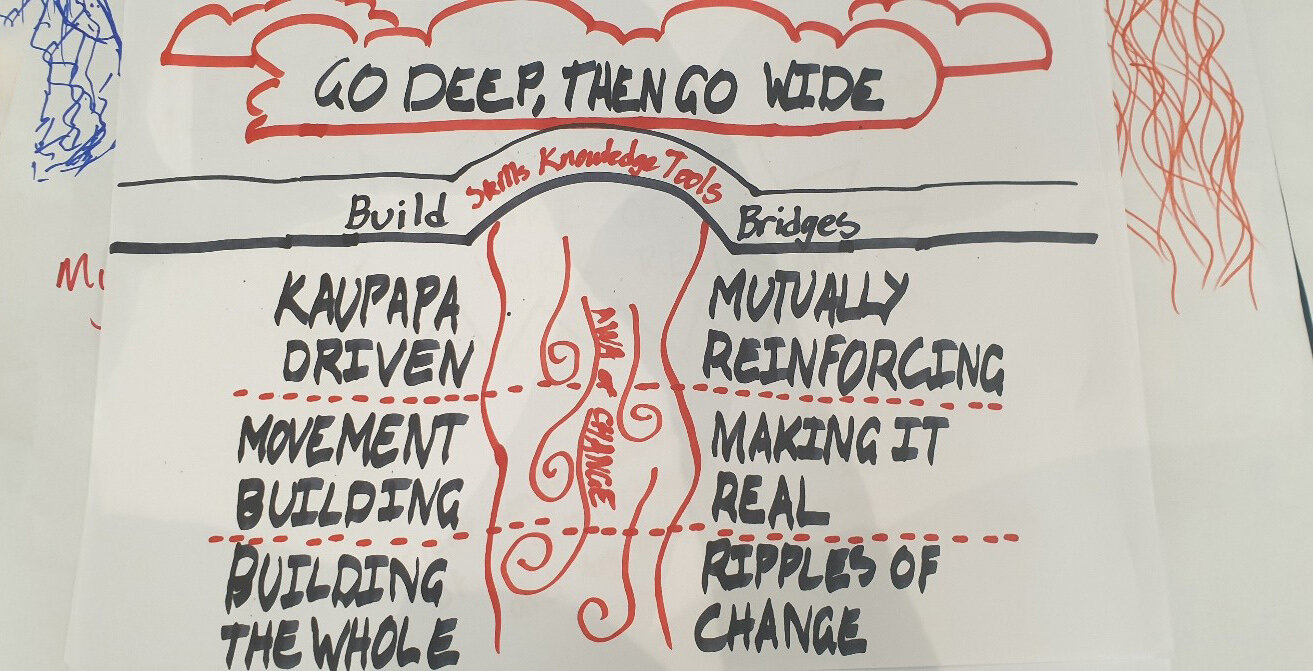 GO DEEP, THEN GO WIDE
Skills Knowledge Tools
Build
Bridges
KAUPAPA
DRIVEN
MOVEMENT
BUILDING
BUILDING
THE WHOLE
AWA of CHANGE
MUTUALLY
REINFORCING
MAKING IT
REAL
RIPPLES OF
CHANGE